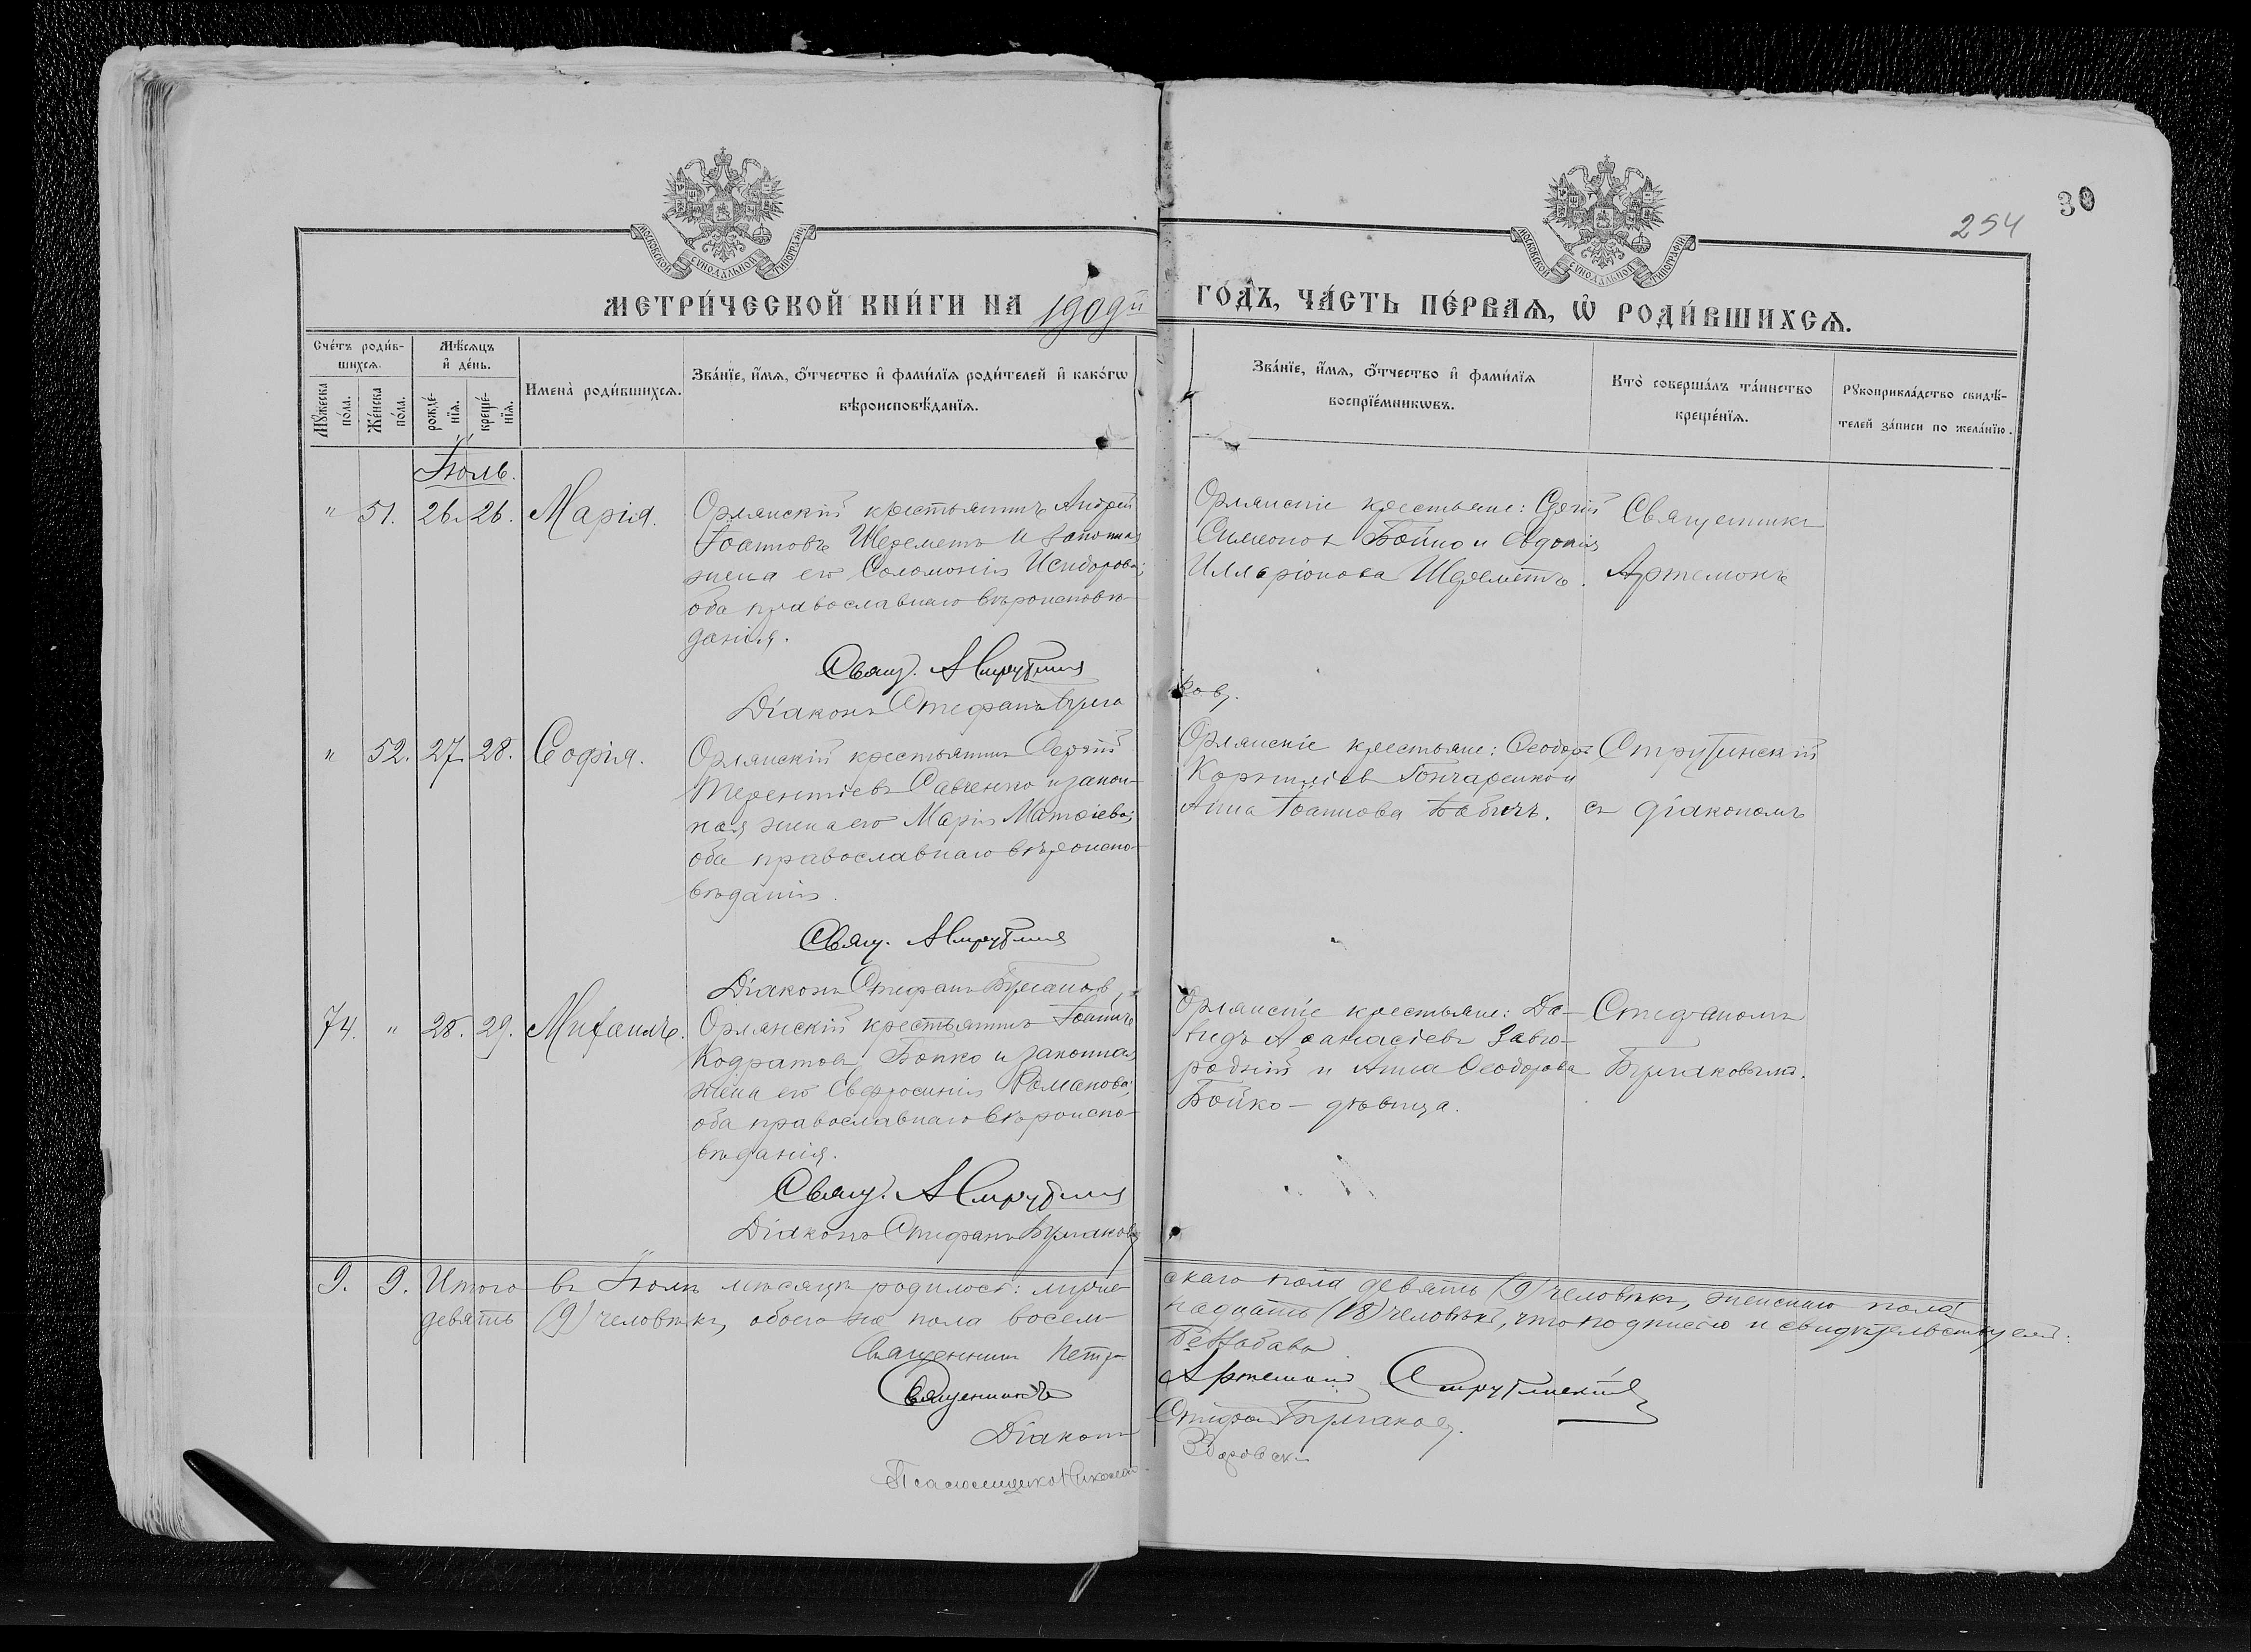 30
254
МОСКОВСКОЙ СѴНОДАЛЬНОЙ ТИПОГРАФІИ
МОСКОВСКОЙ СѴНОДАЛЬНОЙ ТИПОГРАФІИ
МЕТРИ́ЧЕСКОЙ КНИ́ГИ НА 1909й ГОДЪ, ЧА́СТЬ ПЕ́РВАЯ, Ѡ҆ РОДИ́ВШИХСЯ.
Сче́тъ роди́в-
шихся.
Мѣ́сяцъ
и҆ де́нь.
Мꙋ́жеска
по́ла.
Же́нска
по́ла.
рожде́-
нїя.
креще́-
нїя.
И҆мена̀ роди́вшихся.
Зва́нїе, и҆́мя, ѻ҆́тчество и҆ фами́лїя роди́телей и҆ како́гѡ
вѣроисповѣ́данїя.
Зва́нїе, и҆́мя, ѻ҆́тчество и҆ фами́лїя
воспрїе́мникѡвъ.
Кто̀ соверша́лъ та́инство
креще́нїя.
Рꙋкоприкла́дство свидѣ́-
телей за́писи по жела́нїю.
Іюль.
" 51. 26. 26. Марія.
Орлянскій крестьянинъ Андрей
Іоанновъ Шереметъ и законная
жена его Соломонія Исидорова;
оба православнаго вѣроисповѣ-
данія.
Свящ.
Діаконъ Стефанъ
Орлянскіе крестьяне: Сергій
Симеоновъ Бойко и Евдокія
Илларіонова Шереметъ.
Священникъ
Артемонъ
ковъ.
" 52. 27. 28. Софія.
Орлянскій крестьянинъ Сергій
Терентіевъ Савченко и закон-
ная жена его Марія Матѳіева;
оба православнаго вѣроиспо-
вѣданія.
Свящ.
Діаконъ Стефанъ Бурлаковъ
Орлянскіе крестьяне: Ѳеодоръ
Корниліевъ Гончаренко и
Анна Іоаннова Бабичъ.
Струтинскій
съ діакономъ
74. " 28. 29. Михаилъ.
Орлянскій крестьянинъ Іоаннъ
Кодратовъ Бойко и законная
жена его Евфросинія Романова;
оба православнаго вѣроиспо-
вѣданія.
Свящ.
Діаконъ Стефанъ Бурлаковъ
Орлянскіе крестьяне: Да-
видъ Аѳанасіевъ Заво-
родній и Анна Ѳеодорова
Бойко - дѣвица.
Стефаномъ
Бурлаковымъ.
9. 9. Итого въ Іюлѣ мѣсяцѣ родилось: мужескаго пола девять (9) человѣкъ, женскаго пола
девять (9) человѣкъ, обоего же пола восемнадцать (18) человѣкъ, что подписью и свидѣтельствуемъ:
Священникъ Петръ
Священникъ Артемонъ Струтинскій
Діаконъ Стефанъ Бурлаковъ.
Псаломщикъ Николай